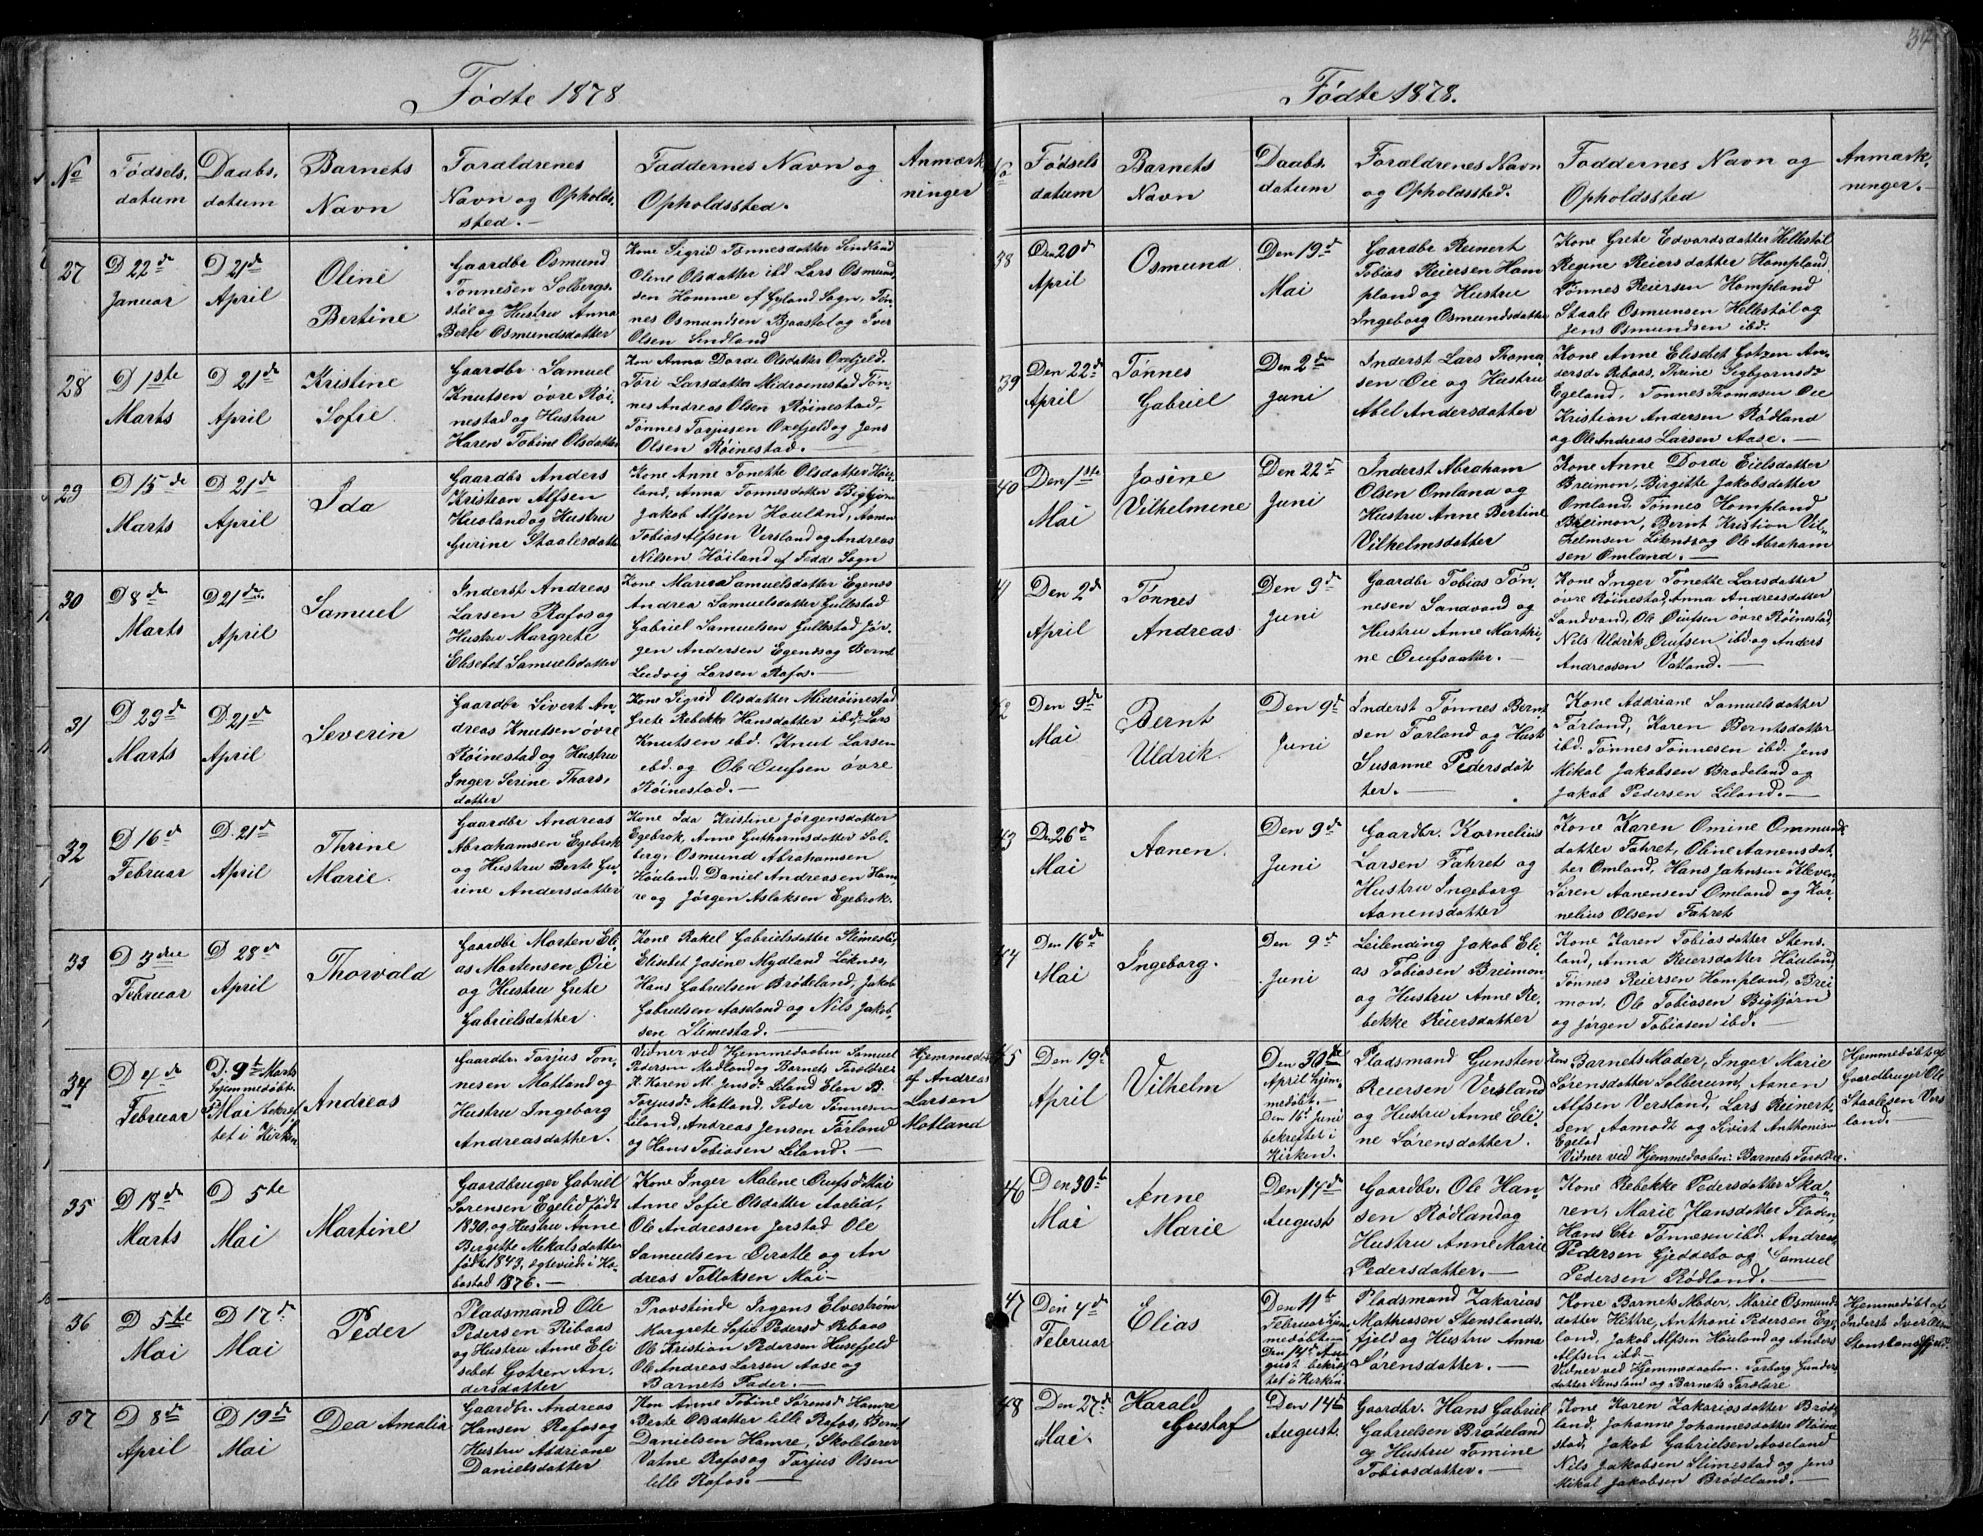 34
Fødte 1878
No
Fødsels-
datum
Daabs-
datum
Barnets
Navn
Foraldrenes
Navn og Opholds-
sted.-
Faddernes Navn og
Opholdssted.
Anmærk
ninger
27
D 22de
Januar
D 21de
April
Oline
Bertine
Gaardbr Osmund
Tønnesen Solbergs-
støl og Hustru Anna
Berte Osmundsdatter
Kone Sigrid Tønnesdatter Sindland
Oline Olsdatter ibd Lars Osmund
sen Homme af Gyland Sogn, Tøn-
nes Osmundsen Bjaastøl og Iver
Olsen Sindland
28
D 1ste
Marts
D 21de
April
Kristine
Sofie
Gaardbr. Samuel
Knutsen øvre Røi-
nestad og Hustru
Karen Tobine Olsdatter
Kon Anna Dorde Olsdatter Oxefjeld
Tori Larsdatter Midroinestad Tøn-
nes Andreas Olsen Røinestad,
Tønnes Torjusen Oxefjeld og Jens
Olsen Røinestad.-
29
D 15de
Marts
D 21de
April
Ida
Gaardbr Anders
Kristian Alfsen
Huoland og Hustru
Gurine Staalesdatter
Kone Anne Tonette Olsdatter Høi-
land, Anna Tønnesdatter Bigtjøn
Jakob Alfsen Houland, Aanen
Tobias Alfsen Versland og Andreas
Nilsen Høiland af Fedde Sogn
30
D 8de
Marts
D 21de
April
Samuel
Inderst Andreas
Larsen Rafos og
Hustru Margrete
Elisebet Samuelsdatter
Kone Maria Samuelsdatter Egenes
Andrea Samuelsdatter Gullestad
Gabriel Samuelsen Gullestad Jør-
gen Andersen Egenes og Bernt
Ludvig Larsen Rafos.-
31
D 29de
Marts
D. 21de
April
Severin
Gaardbr Sivert An-
dreas Knutsen øvre
Røinestad og Hustru
Inger Serine Thors-
datter
Kone Sigrid Olsdatter Midrøinestad
Grete Rebekke Hansdatter ibd Lars
Knutsen ibd. Knut Larsen
ibd. og Ole Oufsen øvre
Røinestad.-
32
D 16de
Februar
D. 21de
April
Thrine
Marie.
Gaardbr Andreas
Abrahamsen Egebrok
og Hustru Berte Gu-
rine Andersdatter
Kone Ida Kristine Jörgensdatter
Egebrok, Anne Guthormsdatter Sol-
berg, Osmund Abrahamsen
Houland, Daniel Andreasen Ham-
re og Jörgen Aslaksen Egebrok.
33
D 3die
Februar
D. 28de
April
Thorvald
Gaardbr Morten Eli-
as Mortensen Oie
og Hustru Grete
Gabrielsdatter.
Kone Rakel Gabrielsdatter Slimestad
Elisebet Josine Mydland Liknes,
Hans Gabrielsen Brødeland, Jakob
Gabrielsen Aaseland og Nils Jakob-
sen Slimestad.-
34
D 4de
Februar
D. 9de Marts
hjemmedøbt.
Mai bekref-
tet i Kirken
Andreas
Gaardbr. Torjus Ton-
nesen Matland og
Hustru Ingeborg
Andreasdatter.
Vidner ved Hjemmedaaben Samuel
Pedersen Modland og Barnets Foreldre
K. Karen M. Jensd. Liland Elen B.
Torjusd. Motland, Peder Tønnesen
Liland, Andreas Jensen Førland
og Hans Tobiasen Liland.-
Hjemmedöb
af Andreas
Larsen
Motland
35
D 18de
Marts
D 5te
Mai
Martine
Gaardbruger Gabriel
Sørensen Egelid, født
1830, og Hustru Anne
Birgitte Mekalsdatter
född 1843, egteviede i Ha-
bostad 1876.-
Kone Inger Malene Oufsd. Mai
Anne Sofie Olsdatter Aaelid,
Ole Andreasen Jerstad Ole
Samuelsen Øratle og An
dreas Tollaksen Mai-
36
D 5te
Mai
D 17de
Mai
Peder
Pladsmand Ole
Pedersen Ribaas
og Hustru Anne Eli
sebet Gotzen An-
dersdatter
Provstinde Irgens Elvestrøm
Margrete Sofie Pedersd Ribaas
Ole Kristian Pedersen Husefjeld
Ole Andreas Larsen Aase og
Barnets Fader.-
37
D 8de
April
D 19de
Mai
Dea Amalia
Gaardbr. Andreas
Hansen Rafos og
Hustru Addriane
Danielsdatter
Kon Anne Tobine Sørensd Hamre
Berte Olsdatter lille Rafos, Bernt
Danielsen Hamre, Skolelærer
Vatne Rafos og Torjus Olsen
lille Rafos.-
Fødte 1878.
No
Fødsels
datum
Barnets
Navn
Daabs.
datum
Foraldrenes Navn
og Opholdssted.
Faddernes Navn og
Opholdssted
Anmark-
ninger.-
38
Den 20de
April
Osmund
Den 19de
Mai
Gaardbr Reinert
Tobias Reiersen Hom
pland og Hustru
Ingeborg Osmundsdatter
Kone Grete Edvardsdatter Hellestøl
Regine Reiersdatter Hompland
Tønnes Reiersen Hompland
Staale Osmunsen Hellestøl og
Jens Osmundsen ibd.
39
Den 22de
April
Tønnes
Gabriel
Den 2den
Juni
Inderst Lars Thoma
sen Oie og Hustru
Abel Andersdatter
Kone Anne Elisebet Gotzen An-
dersd. Ribaas, Thrine Sigbjørnsd.
Egeland, Tønnes Thomasen Oie
Kristian Andersen Rødland
og Ole Andreas Larsen Aase.-
40
Den 1ste
Mai
Josine
Vilhelmine
Den 22de
Juni
Inderst Abraham
Olsen Omland og
Hustru Anne Bertine
Vilhelmsdatter
Kone Anne Dorde Eielsdatter
Breimon, Birgitte Jakobsdatter
Omland, Tønnes Hompland
Breimon, Bernt Kristian Vil-
helmsen Liknes og Ole Abraham
sen Omland.-
41
Den 2de
April
Tønnes
Andreas.
Den 9de
Juni
Gaardbr Tobias Tøn-
nesen Sandvand og
Hustru Anne Marthi-
ne Oufsdatter.-
Kone Inger Tonette Larsdatter
øvre Røinestad, Anna Andreasdatter
Sandvand, Ole Oufsen øvre Røinestad,
Nils Uldrik Oufsen ibd. og Anders
Andreasen Vatland.-
42
Den 9de
Mai
Bernt
Uldrik.
Den 9de
Juni
Inderst Tønnes Bernt
sen Førland og Hust
Susanne Pedersdat
ter.-
Kone Addriane Samuelsdatter
Førland, Karen Berntsdatter
ibd. Tønnes Tønnesen ibd. Jens
Mikal Jakobsen Brødeland og
Jakob Pedersen Liland.-
43
Den 26de
Mai
Aanen.
Den 9de
Juni
Gaardbr. Kornelius
Larsen Fahret og
Hustru Ingeborg
Aanensdatter
Kone Karen Omine Ommund-
datter Fahret, Oline Aanensdat-
ter Omland, Hans Jahnsen Kleven,
Søren Aanensen Omland og Kor-
nelius Olsen Fahret
44
Den 16de
Mai
Ingeborg.
Den 9de
Juni
Leilending Jakob Eli-
as Tobiasen Breimon
og Hustru Anne Re-
bekke Reiersdatter
Kone Karen Tobiasdatter Stens-
land, Anna Reiersdatter Houland,
Tønnes Reiersen Hompland, Brei
mon, Ole Tobiasen Bigtjørn
og Jørgen Tobiasen ibd.-
45
Den 19de
April
Vilhelm
Den 30te
April hjem-
medøbt.-
Den 16de Juni
bekreftet i
Kirken.
Pladsmand Gunsten
Reiersen Versland
og Hustru Anne Eli-
ne Sørensdatter.
Kon Barnets Moder, Inger Marie
Sörensdatter Solberum, Aanen
Alfsen Versland, Lars Reinert-
sen Aamodt og Sivert Anthonisen
Egelad
Vidner ved Hjemmedaaben: Barnets Forældre.
Hjemmedøbt af
Gaardbruger Ole
Staalesen Vers
land.-
46
Den 30te
Mai
Anne
Marie
Den 14de
August
Gaardbr. Ole Han-
sen Rødland og
Hustru Anne Marie
Pedersdatter.-
Kone Rebekke Pedersdatter Ska-
ren, Marie Hansdatter Floden,
Hans Chr. Tønnesen ibd. Andreas
Pedersen Gjeddebo og Samuel
Pedersen Rødland.-
47
Den 4de
Februar
Elias
Den 11te
Februar hjem-
medøbt.
Den 14de Au-
gust bekref-
tet i Kirken.
Pladsmand Zakarias
Mathiasen Stenslands-
fjeld og Hustru Anna
Sørensdatter.-
Kone Barnets Moder, Marie Osmund-
datter Hittre, Anthoni Pedersen Ege-
land, Jakob Alfsen Houland og Anders
Alfsen ibd.-
Vidner ved Hjemmedaaben. Torborg Gunder
datter Stensland og Barnets Forældre
Hjemmedøbt af
Inderst Iver Olsen
Stenslandsfjeld.
48
Den 27de
Mai.
Harald
Gustaf
Den 14de
August.
Gaardbr. Hans Gabriel
Gabrielsen Brødeland
og Hustru Tomine
Tobiasdatter.-
Kone Karen Zakariasdatter Brøde
land, Johanne Johannesdatter Røine
stad, Jakob Gabrielsen Aaseland
Nils Jakobsen Slimestad og Jens
Mikal Jakobsen Brødeland.-